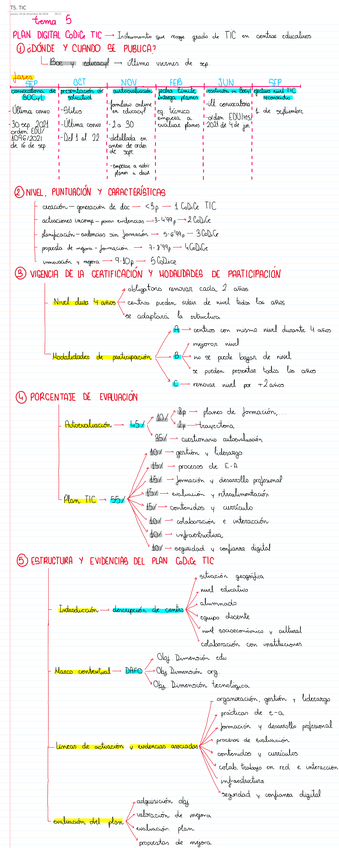 T5. TIC
tema 5
PLAN DIGITAL CoDiCe TIC → Instrumento que recoge grado de TIC en centros educativos
① ¿DÓNDE Y CUANDO SE PUBLICA?
Bocyl y educacyl → último viernes de sep
fases
SEP OCT NOV FEB JUN SEP
convocatoria de BOCyl
- Última convo
- 30 sep 2021
orden EDU/
1096/2021
de 16 de sep
presentación de solicitud
- Stilus
- Última convo
- Del 1 al 22
autoevaluación
formulario online
en educacyl
- 2 a 30
- detallada en
antes de orden
de sept
- empezar a subir
planes a cloud
fecha límite entrega planes
eq. técnico
empieza a
evaluar planes
resolución en Bocyl
- ult convocatoria
orden EDU/665
2021 de 4 de jun
efectivo nivel TIC reconocido
1 de septiembre
② NIVEL, PUNTUACIÓN Y CARACTERÍSTICAS
creación - generación de doc → <3p → 1 CoDiCe TIC
actuaciones income - pocas evidencias → 3-4'99p → 2 CoDiCe
planificación - evidencias sin formación → 5-6'99p → 3 CoDiCe
propuesta de mejora - formación → 7-8'99p → 4 CoDiCe
innovación y mejora → 9-10p → 5 CoDice
③ VIGENCIA DE LA CERTIFICACIÓN Y MODALIDADES DE PARTICIPACIÓN
Nivel dura 4 años
obligatorio renovar cada 2 años
centros pueden subir de nivel todos los años
se adaptará la estructura
Modalidades de participación
A → centros con mismo nivel durante 4 años
B
mejorar nivel
no se puede bajar de nivel
se pueden presentar todos los años
C → renovar nivel por +2 años
④ PORCENTAJE DE EVALUACIÓN
Autoevaluación → 45%
→ planes de formación,...
→ trayectoria
35% → cuestionario autoevaluación
Plan TIC → 55%
10% → gestión y liderazgo
15% → procesos de E-A
15% → formación y desarrollo profesional
→ evaluación y retroalimentación
15% → contenidos y currículo
10% → colaboración e interacción
10% → infraestructura
10% → seguridad y confianza digital
⑤ ESTRUCTURA Y EVIDENCIAS DEL PLAN CoDiCe TIC
Introducción → descripción de centro
situación geográfica
nivel educativo
alumnado
equipo docente
nivel socioeconómico y cultural
colaboración con instituciones
Marco contextual → DAFO
Obj. Dimensión edu
Obj. Dimensión org
Obj. Dimensión tecnológica
Líneas de actuación y evidencias asociadas
organización, gestión y liderazgo
prácticas de e-a
formación y desarrollo profesional
procesos de evaluación
contenidos y currículos
colab, trabajo en red e interacción
infraestructura
seguridad y confianza digital
evaluación del plan
adquisición obj
valoración de mejora
evaluación plan
propuestas de mejora